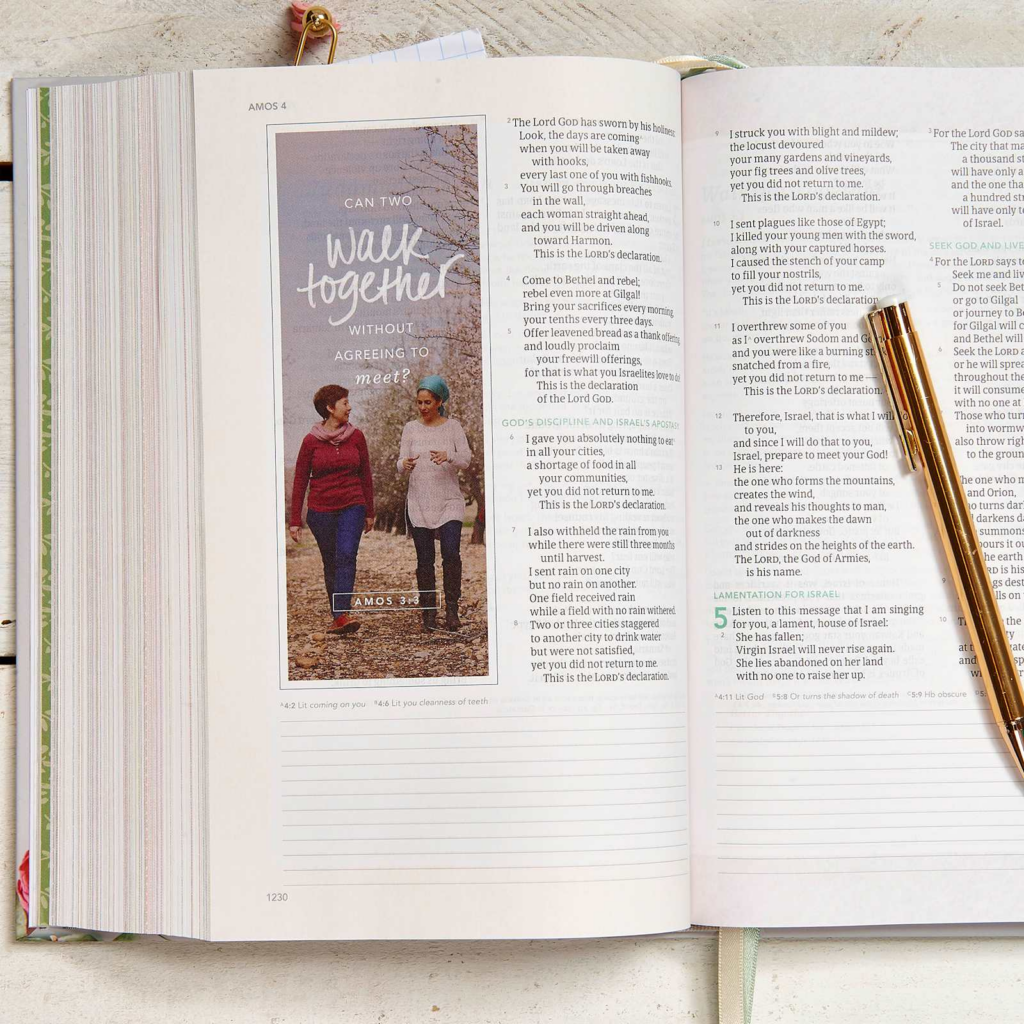 AMOS 4
CAN TWO
walk
together
WITHOUT
AGREEING TO
meet?
AMOS 3:3
2 The Lord GOD has sworn by his holiness:
Look, the days are coming
when you will be taken away
with hooks,
every last one of you with fishhooks.
3 You will go through breaches
in the wall,
each woman straight ahead,
and you will be driven along
toward Harmon.
This is the LORD's declaration.
4 Come to Bethel and rebel;
rebel even more at Gilgal!
Bring your sacrifices every morning,
your tenths every three days.
5 Offer leavened bread as a thank offering,
and loudly proclaim
your freewill offerings,
for that is what you Israelites love to do!
This is the declaration
of the Lord GOD.
GOD'S DISCIPLINE AND ISRAEL'S APOSTASY
6 I gave you absolutely nothing to eat
in all your cities,
a shortage of food in all
your communities,
yet you did not return to me.
This is the LORD's declaration.
7 I also withheld the rain from you
while there were still three months
until harvest.
I sent rain on one city
but no rain on another.
One field received rain
while a field with no rain withered.
8 Two or three cities staggered
to another city to drink water
but were not satisfied,
yet you did not return to me.
This is the LORD's declaration.
A4:2 Lit coming on you B4:6 Lit you cleanness of teeth
1230
9 I struck you with blight and mildew;
the locust devoured
your many gardens and vineyards,
your fig trees and olive trees,
yet you did not return to me.
This is the LORD's declaration.
10 I sent plagues like those of Egypt;
I killed your young men with the sword,
along with your captured horses.
I caused the stench of your camp
to fill your nostrils,
yet you did not return to me.
This is the LORD's declaration.
11 I overthrew some of you
as I A overthrew Sodom and
and you were like a burning
snatched from a fire,
yet you did not return to me —
This is the LORD's declaration.
12 Therefore, Israel, that is what I will
to you,
and since I will do that to you,
Israel, prepare to meet your God!
13 He is here:
the one who forms the mountains,
creates the wind,
and reveals his thoughts to man,
the one who makes the dawn
out of darkness
and strides on the heights of the earth.
The LORD, the God of Armies,
is his name.
LAMENTATION FOR ISRAEL
5 Listen to this message that I am singing
for you, a lament, house of Israel:
2 She has fallen;
Virgin Israel will never rise again.
She lies abandoned on her land
with no one to raise her up.
A4:11 Lit God B5:8 Or turns the shadow of death C5:9 Hb obscure
3 For the Lord GOD
The city that
a thousand
will have only a
and the one
a hundred
will have only
of Israel.
SEEK GOD AND LIVE
4 For the LORD says
Seek me and
5 Do not seek
or go to Gilgal
or journey to
for Gilgal will
and Bethel will
6 Seek the LORD
or he will
throughout the
it will consume
with no one at
Those who turn
into
also throw
to the
one who
and Orion,
darkens
out
the earth
is his
9
on
10
the
at
and